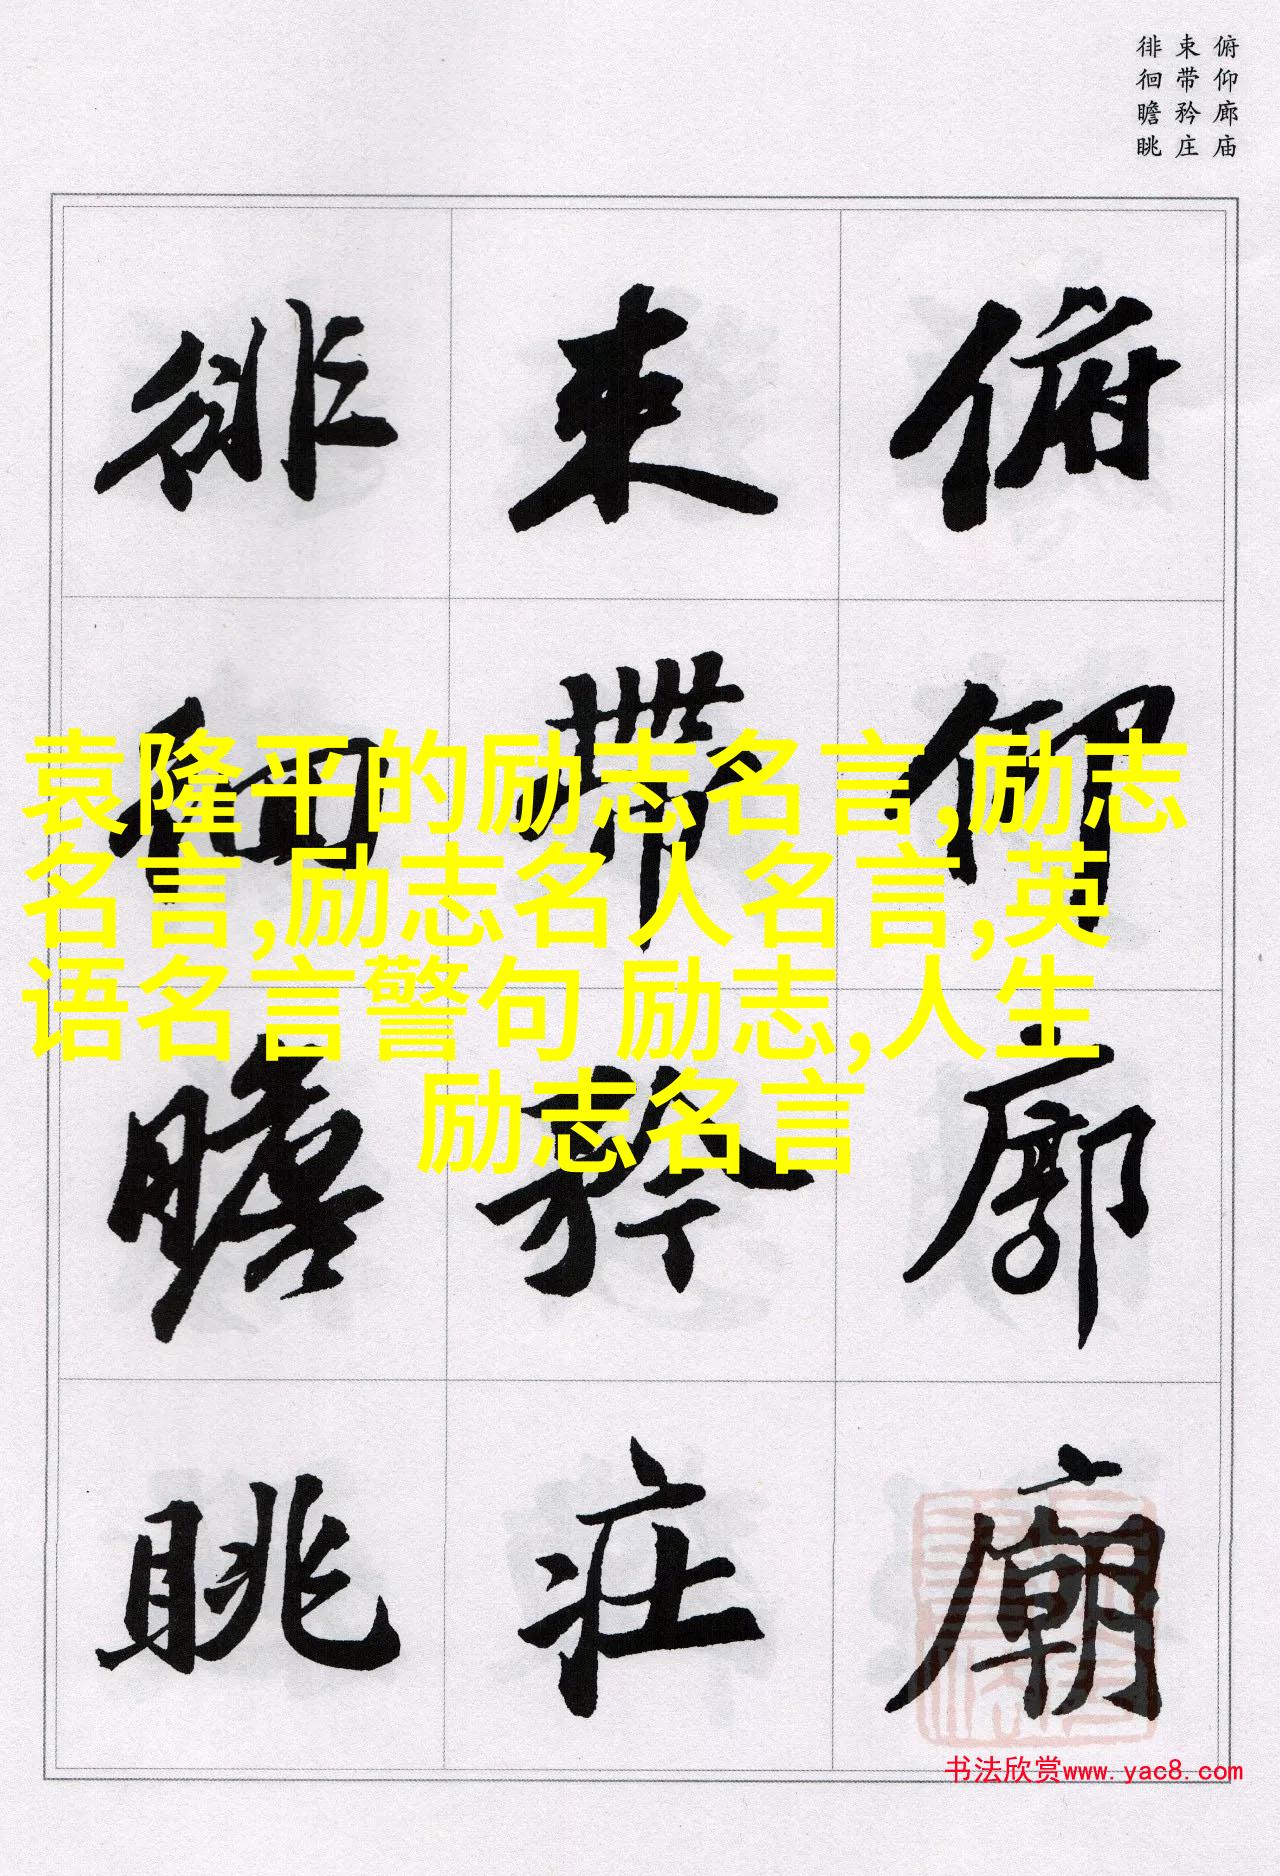 俯仰廊庙
束带矜庄
徘徊瞻眺
俯仰廊廟
束帶矜莊
徘徊瞻眺
袁隆平的励志名言,励志
名言,励志名人名言,英
语名言警句 励志,人生
励志名言
书法欣赏www.yac8.com